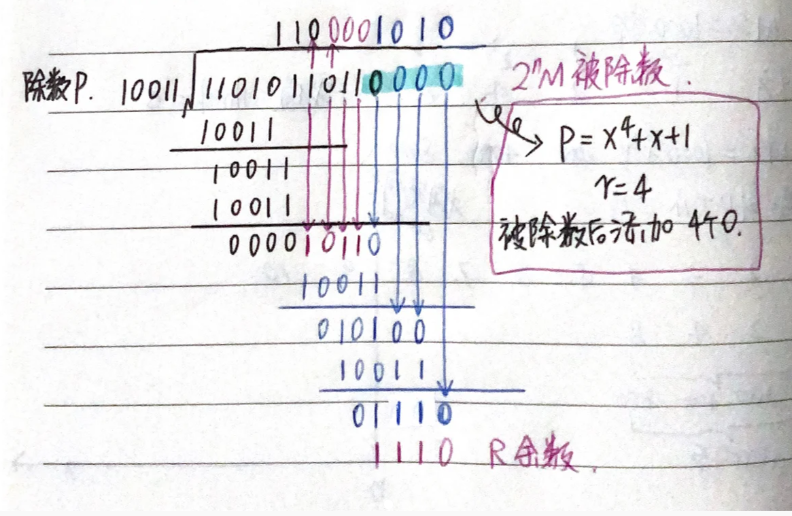 1100001010
除数P. 10011 11010110110000 2ⁿM 被除数.
10011
10011
10011
000010110
10011
010100
10011
01110
1110 R余数.
P=x⁴+x+1
r=4
被除数后添加4个0.